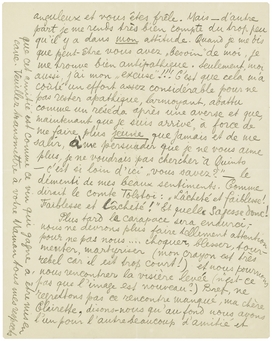 anguleux et vous êtes frêle. Mais — d'autre
part je me rends très bien compte du trop peu
qu'il y a dans mon attitude. Quand je me dis
que peut-être vous avez besoin de moi, je
me trouve bien antipathique. Seulement, moi
aussi, j'ai mon "excuse"!!! C'est que cela m'a
coûté un effort assez considérable pour ne
pas rester apathique, larmoyant, abattu
comme un réséda après une averse et que,
maintenant que je suis arrivé, à force de
me faire plus jeune que jamais et de me
salir, à me persuader que je ne vous aime
plus, je ne voudrais pas chercher à Quinto
— c'est si loin d'ici, vous savez? — le
démenti de mes beaux sentiments. Comme
dirait le comte Tolstoï: "Lâcheté et faiblesse!
Faiblesse et Lâcheté!" Et quelle Sagesse donc!
Plus tard la carapace sera endurcie;
nous ne devrons plus faire tellement attention
pour ne pas nous ... choquer, blesser, tour-
menter, martyriser (mon crayon est très
rebel car il est trop court!) et nous pourrons
nous rencontrer la visière levée (n'est-ce
pas que l'image est nouveau?) Bref, ne
regrettons pas ce rencontre manqué, ma chère
Clairette, disons-nous qu'au fond nous ayons
l'un pour l'autre beaucoup d'amitié et